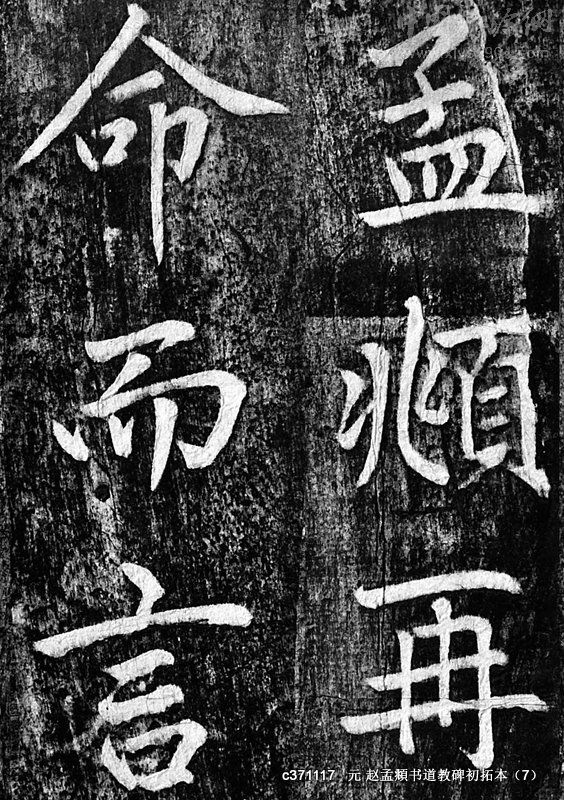 孟頫再
命而言
c371117 元 赵孟頫书道教碑初拓本（7）